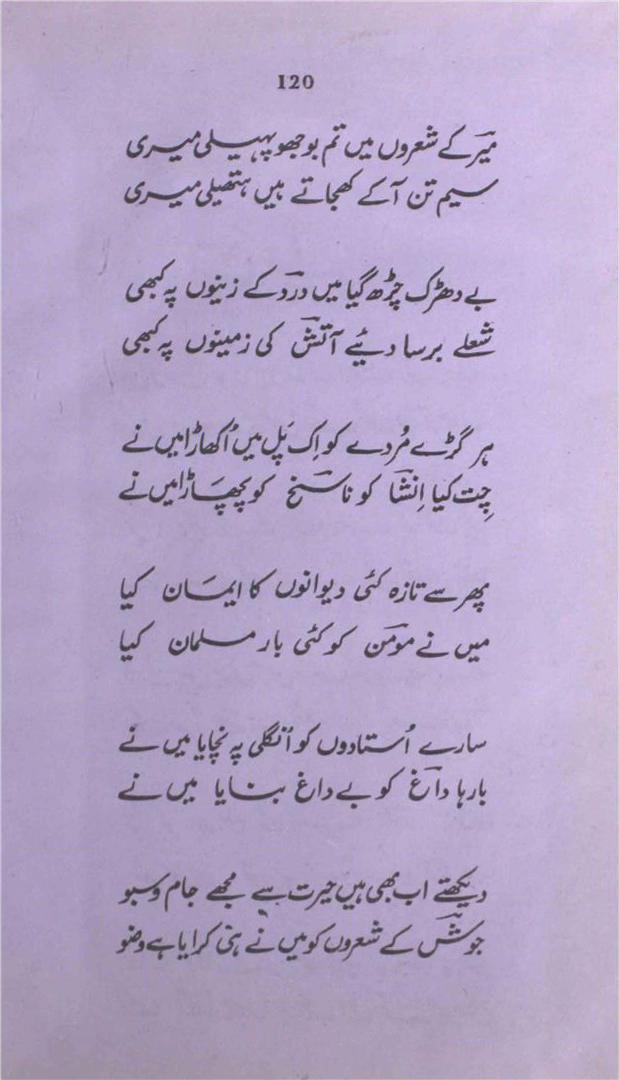 120
میرؔ کے شعروں میں تم بوجھو پہیلی میری
سیم تن آ کے کھجاتے ہیں ہتھیلی میری
بے دھڑک چڑھ گیا میں دردؔ کے زینوں پہ کبھی
شعلے برسا دئیے آتشؔ کی زمینوں پہ کبھی
ہر گڑے مُردے کو اِک پَل میں اُکھاڑا میں نے
چِت کیا اِنشاؔ کو ناسخؔ کو پچھَاڑا میں نے
پھر سے تازہ کئی دیوانوں کا ایمَان کیا
میں نے مومنؔ کو کئی بار مسلمان کیا
سارے اُستادوں کو اُنگلی پہ نچایا میں نے
بارہا داغؔ کو بے داغ بنایا میں نے
دیکھتے اب بھی ہیں حیرت سے مجھے جام و سبو
جوشؔ کے شعروں کو میں نے ہی کرایا ہے وضو